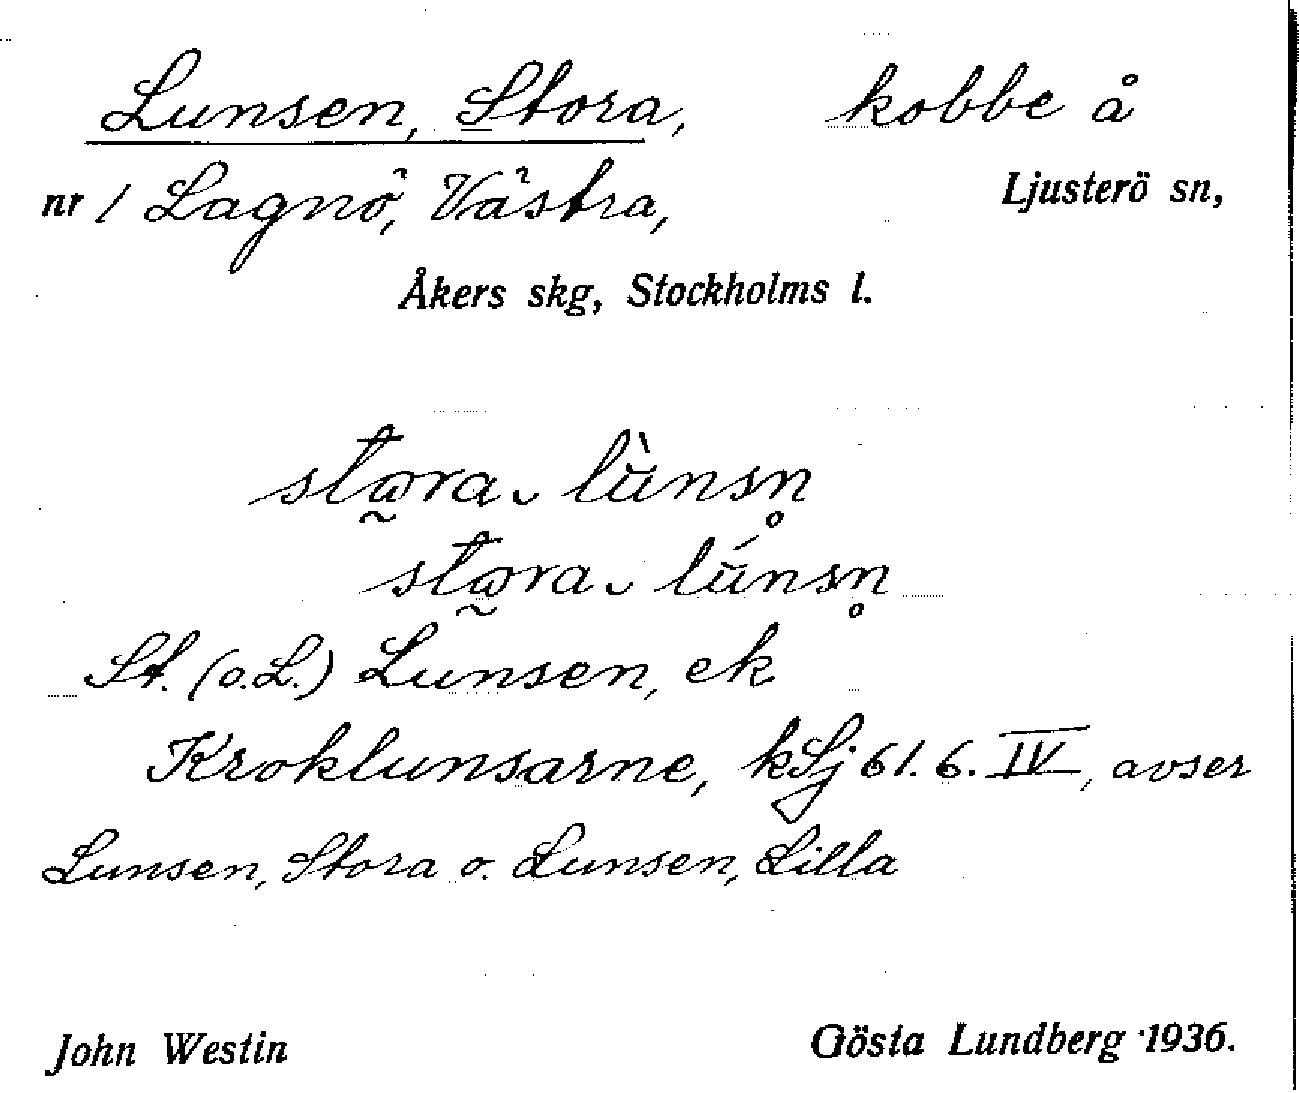 Lunsen, Stora, kobbe å
nr 1 Lagnö, Västra, Ljusterö sn,
Åkers skg, Stockholms l.
stωra ͜ lùnsn̥
stωra ͜ lúnsn̥
St. (o.L.) Lunsen, ek
Kroklunsarne, kSj 61. 6. IV, avser
Lunsen, Stora o. Lunsen, Lilla
John Westin Gösta Lundberg 1936.